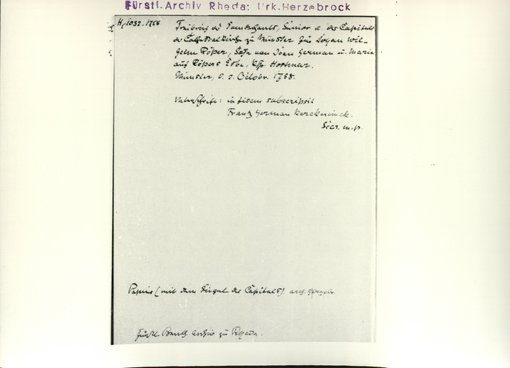 Fürstl. Archiv Rheda: Urk. Herzebrock
H, 1032, 1768
Freibrief des Domkapitels, Senior u. des Capitels
der Cathedralkirche zu Münster für Johan Wil-
helm Röper, Sohn von Joan Herman u. Maria
aus Röpers Erbe, Ksp.
Münster, d. 5. Octobr. 1768.
Unterschrift: in fidem subscripsit
Frantz Herman
Secr. m. p.
Papier (mit dem Siegel des Capitels)
Fürstl. Archiv zu Rheda.